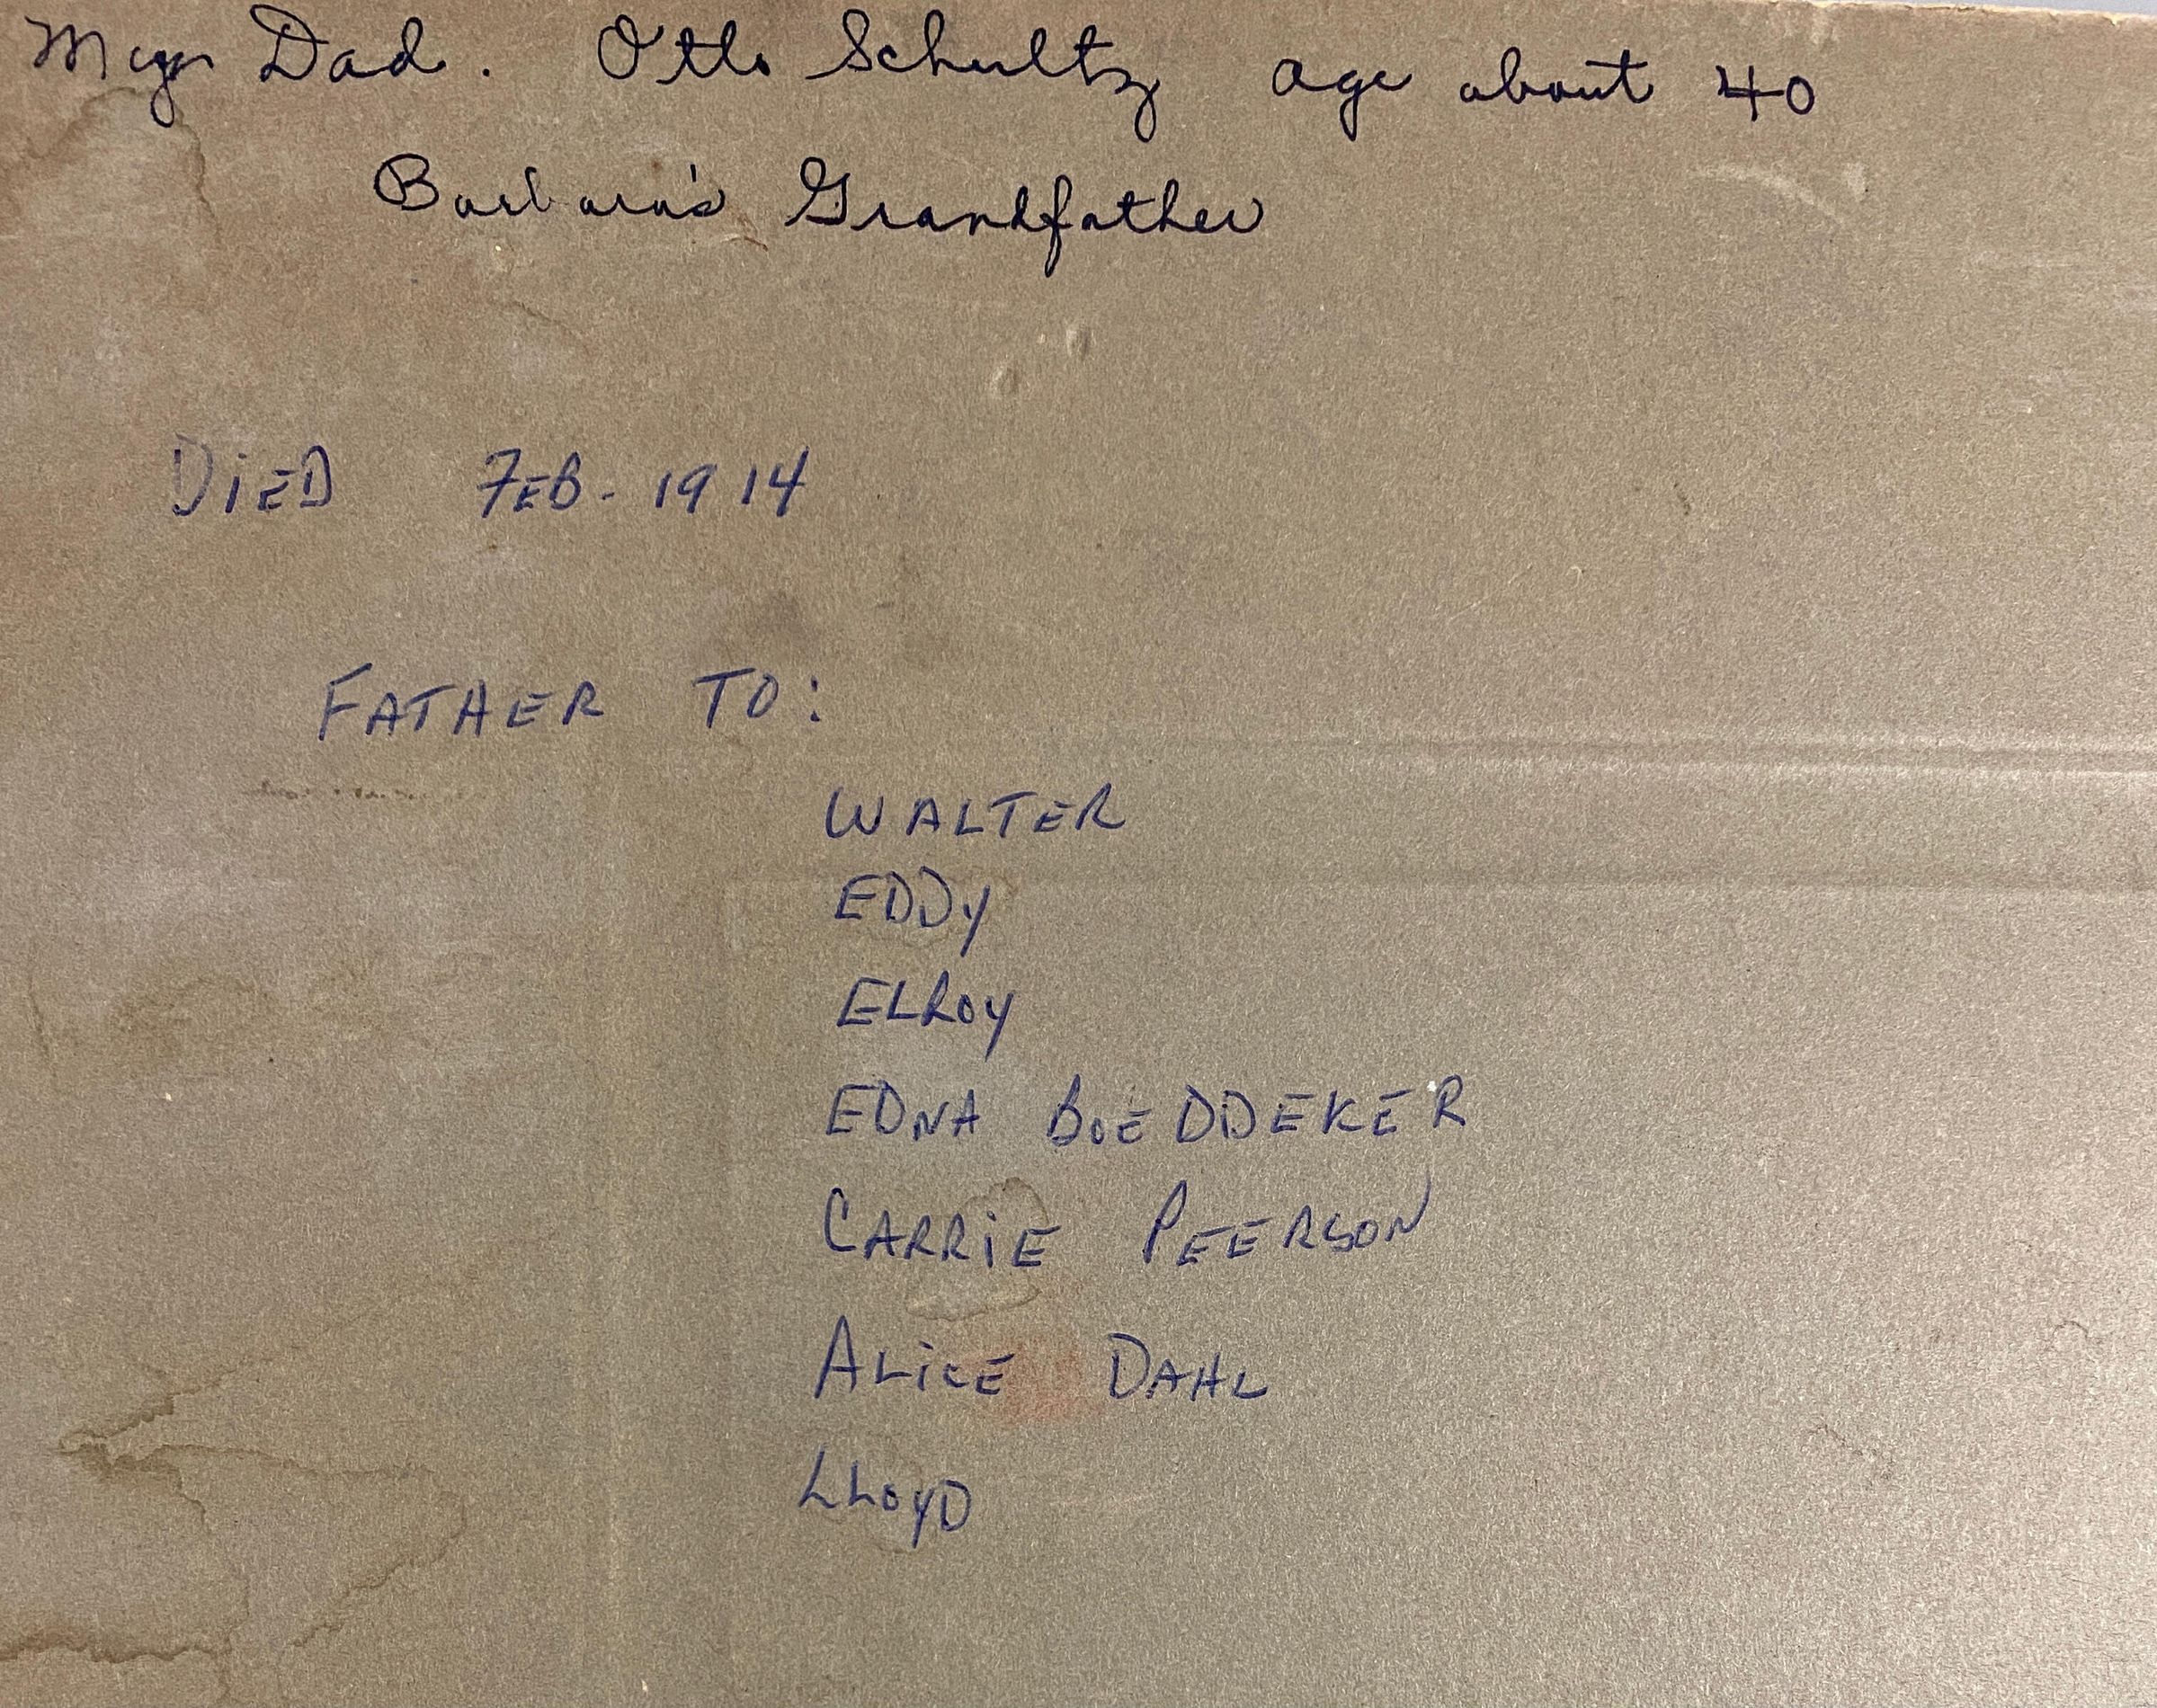 My Dad. Otto Schultz age about 40
Barbara's Grandfather
DIED FEB. 1914
FATHER TO:
WALTER
EDDY
ELROY
EDNA BOEDDEKER
CARRIE PEERSON
ALICE DAHL
LLOYD